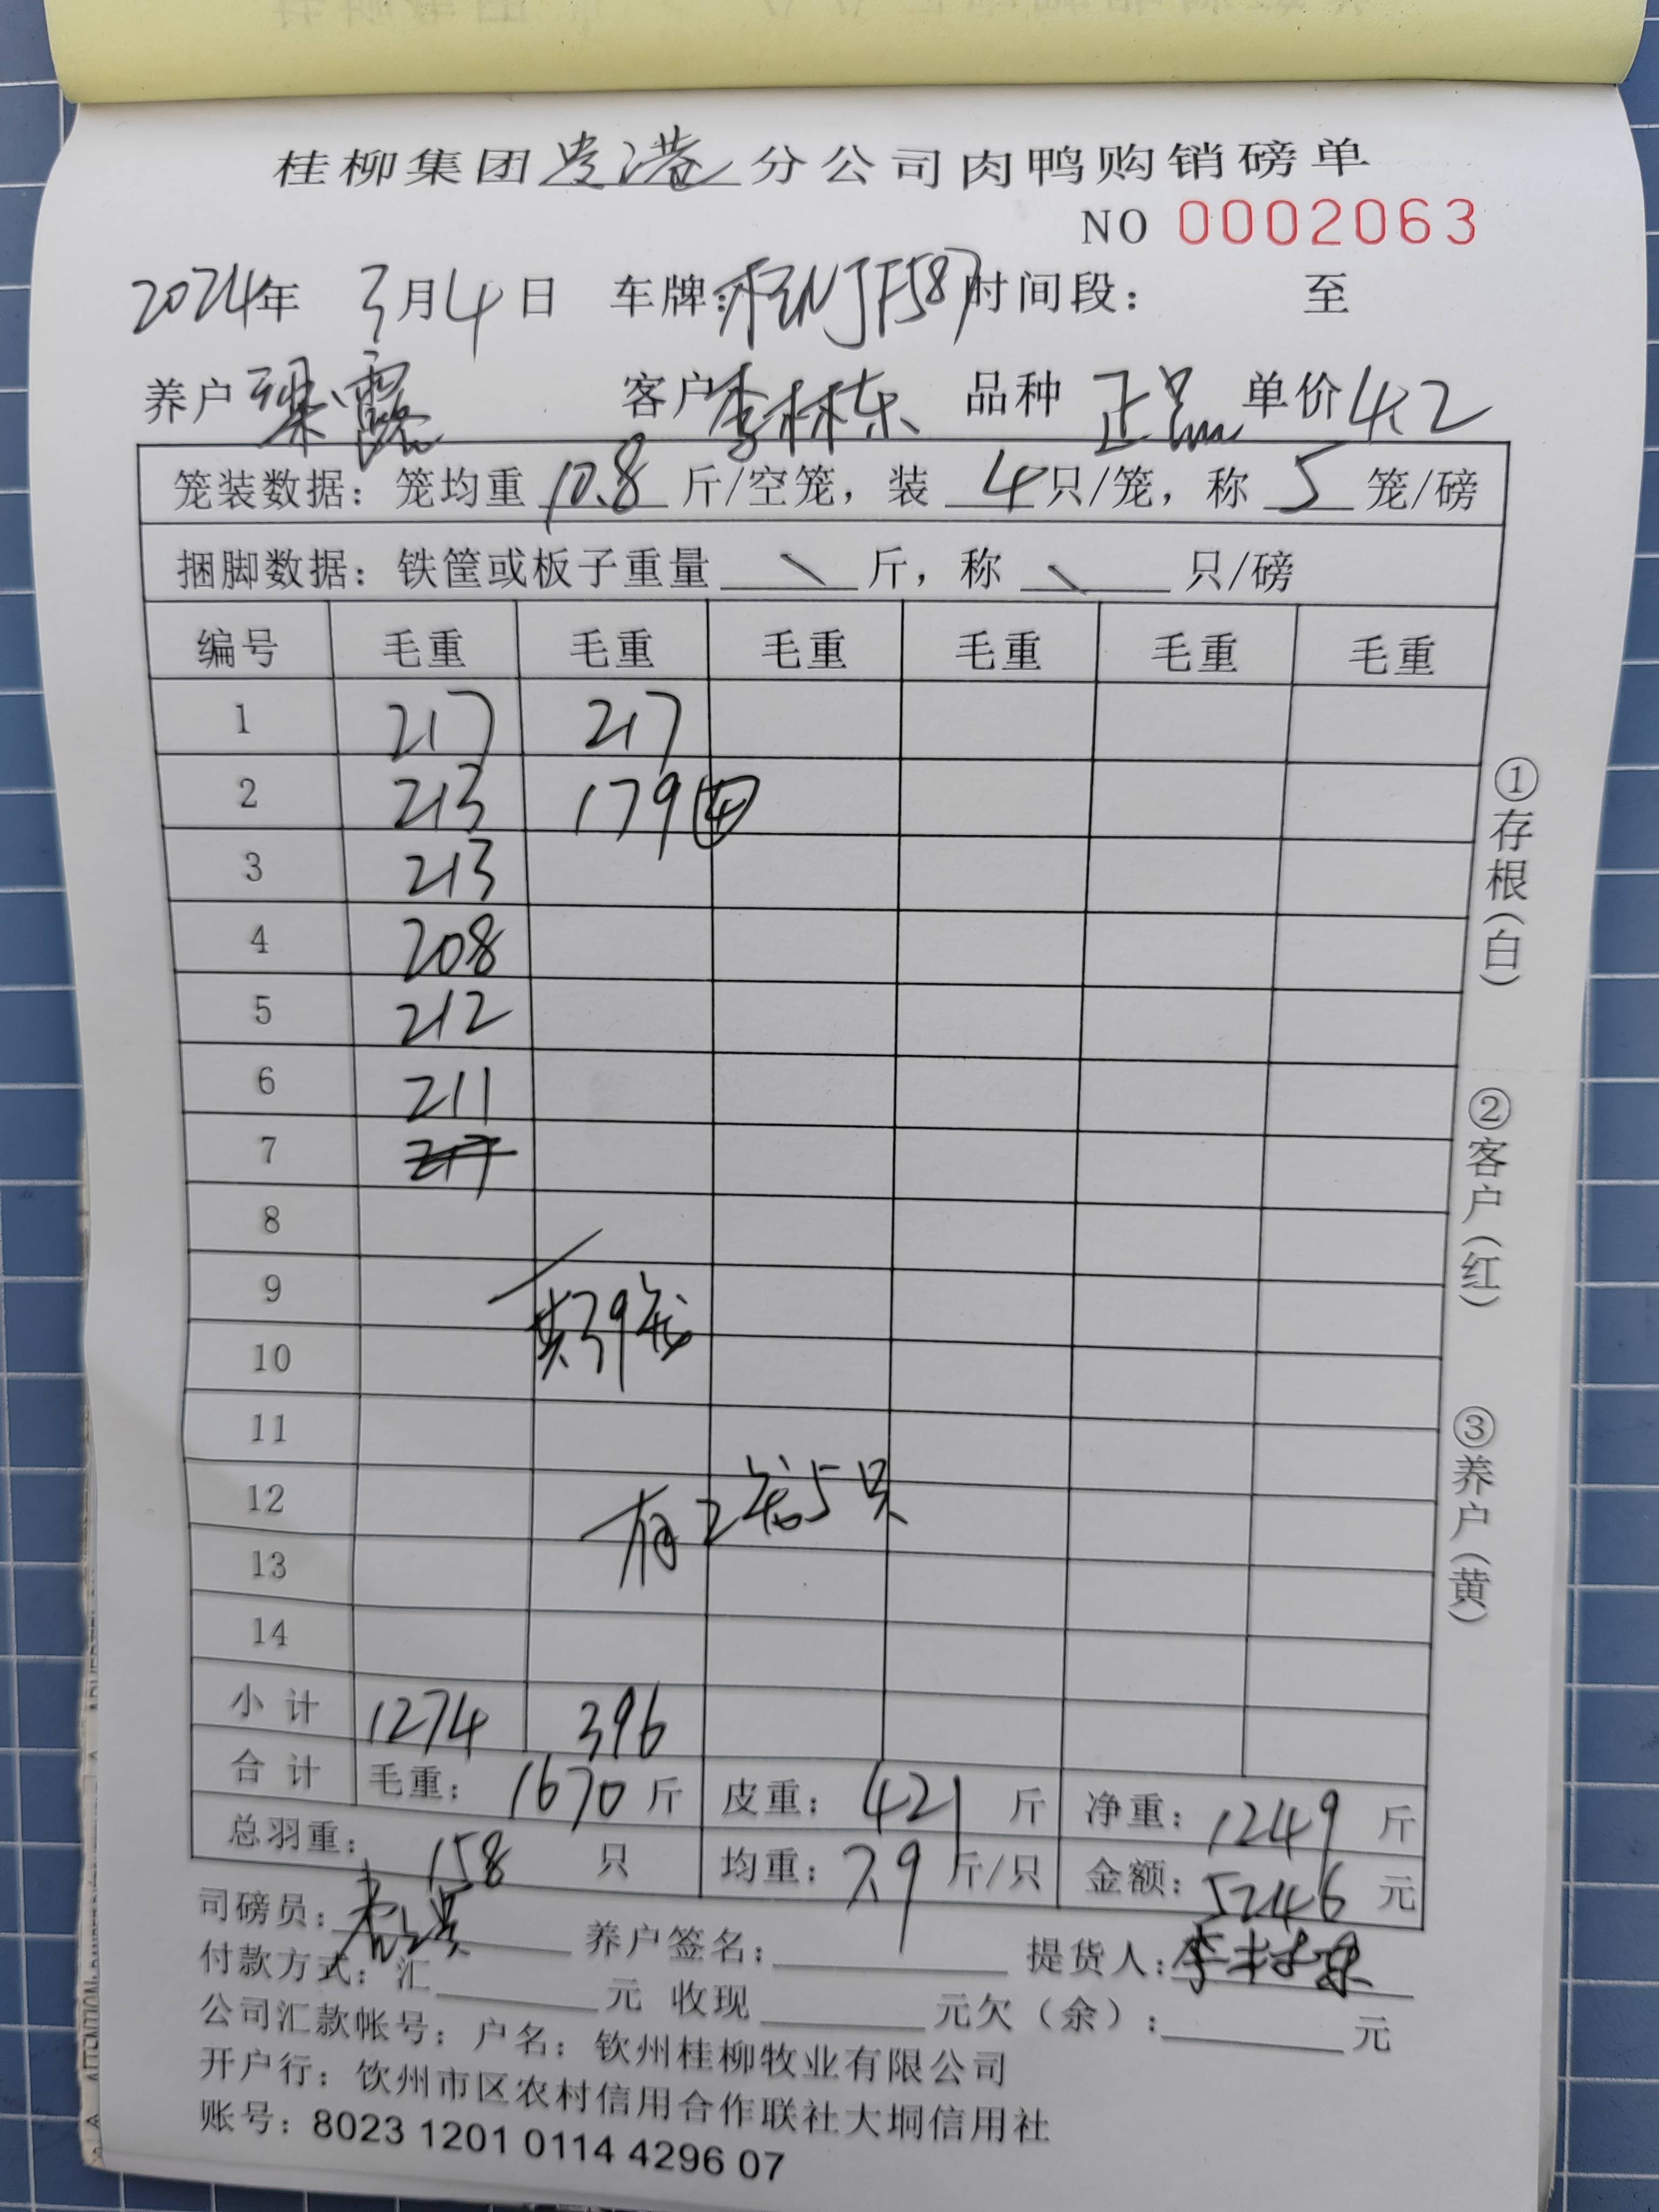 桂柳集团贵港分公司肉鸭购销磅单
NO 0002063
2024年 3月4日 车牌: 时间段: 至
养户 梁露 客户 李林东 品种 正品 单价 4.2
笼装数据: 笼均重 10.8 斤/空笼, 装 4 只/笼, 称 5 笼/磅
捆脚数据: 铁筐或板子重量 \ 斤, 称 \ 只/磅
编号 毛重 毛重 毛重 毛重 毛重 毛重
1 217 217
2 213 179 ④
3 213
4 208
5 212
6 211
7
8
9
共39笼
10
11
12
有2笼5只
13
14
小计 1274 396
合计 毛重: 1670 斤 皮重: 421 斤 净重: 1249 斤
总羽重: 158 只 均重: 7.9 斤/只 金额: 5246 元
司磅员: 养户签名: 提货人: 李林东
付款方式: 汇 元 收现 元欠(余): 元
公司汇款帐号: 户名: 钦州桂柳牧业有限公司
开户行: 钦州市区农村信用合作联社大垌信用社
账号: 8023 1201 0114 4296 07
①存根(白)
②客户(红)
③养户(黄)